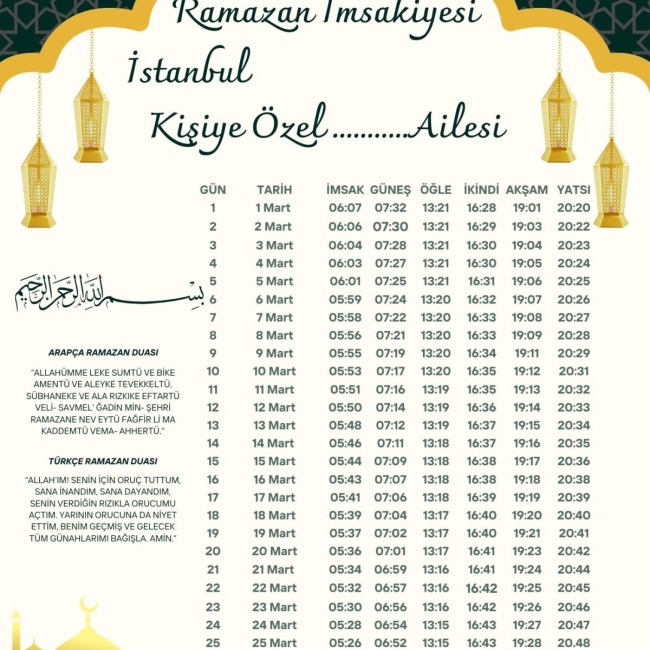 Ramazan İmsakiyesi
İstanbul
Kişiye Özel ...........Ailesi
GÜN TARİH İMSAK GÜNEŞ ÖĞLE İKİNDİ AKŞAM YATSI
1 1 Mart 06:07 07:32 13:21 16:28 19:01 20:20
2 2 Mart 06:06 07:30 13:21 16:29 19:03 20:22
3 3 Mart 06:04 07:28 13:21 16:30 19:04 20:23
4 4 Mart 06:03 07:27 13:21 16:30 19:05 20:24
5 5 Mart 06:01 07:25 13:21 16:31 19:06 20:25
6 6 Mart 05:59 07:24 13:20 16:32 19:07 20:26
7 7 Mart 05:58 07:22 13:20 16:33 19:08 20:27
8 8 Mart 05:56 07:21 13:20 16:33 19:09 20:28
9 9 Mart 05:55 07:19 13:20 16:34 19:11 20:29
10 10 Mart 05:53 07:17 13:20 16:35 19:12 20:31
11 11 Mart 05:51 07:16 13:19 16:35 19:13 20:32
12 12 Mart 05:50 07:14 13:19 16:36 19:14 20:33
13 13 Mart 05:48 07:12 13:19 16:37 19:15 20:34
14 14 Mart 05:46 07:11 13:18 16:37 19:16 20:35
15 15 Mart 05:44 07:09 13:18 16:38 19:17 20:36
16 16 Mart 05:43 07:07 13:18 16:38 19:18 20:38
17 17 Mart 05:41 07:06 13:18 16:39 19:19 20:39
18 18 Mart 05:39 07:04 13:17 16:40 19:20 20:40
19 19 Mart 05:37 07:02 13:17 16:40 19:21 20:41
20 20 Mart 05:36 07:01 13:17 16:41 19:23 20:42
21 21 Mart 05:34 06:59 13:16 16:41 19:24 20:44
22 22 Mart 05:32 06:57 13:16 16:42 19:25 20:45
23 23 Mart 05:30 06:56 13:16 16:42 19:26 20:46
24 24 Mart 05:28 06:54 13:15 16:43 19:27 20:47
25 25 Mart 05:26 06:52 13:15 16:43 19:28 20.48
بسم الله الرحمن الرحيم
ARAPÇA RAMAZAN DUASI
“ALLAHÜMME LEKE SUMTÜ VE BİKE
AMENTÜ VE ALEYKE TEVEKKELTÜ,
SÜBHANEKE VE ALA RIZKIKE EFTARTÜ
VELİ- SAVMEL’ ĞADİN MİN- ŞEHRİ
RAMAZANE NEV EYTÜ FAĞFİR Lİ MA
KADDEMTÜ VEMA- AHHERTÜ.”
TÜRKÇE RAMAZAN DUASI
“ALLAH’IM! SENİN İÇİN ORUÇ TUTTUM,
SANA İNANDIM, SANA DAYANDIM,
SENİN VERDİĞİN RIZIKLA ORUCUMU
AÇTIM. YARININ ORUCUNA DA NİYET
ETTİM, BENİM GEÇMİŞ VE GELECEK
TÜM GÜNAHLARIMI BAĞIŞLA. AMİN.”